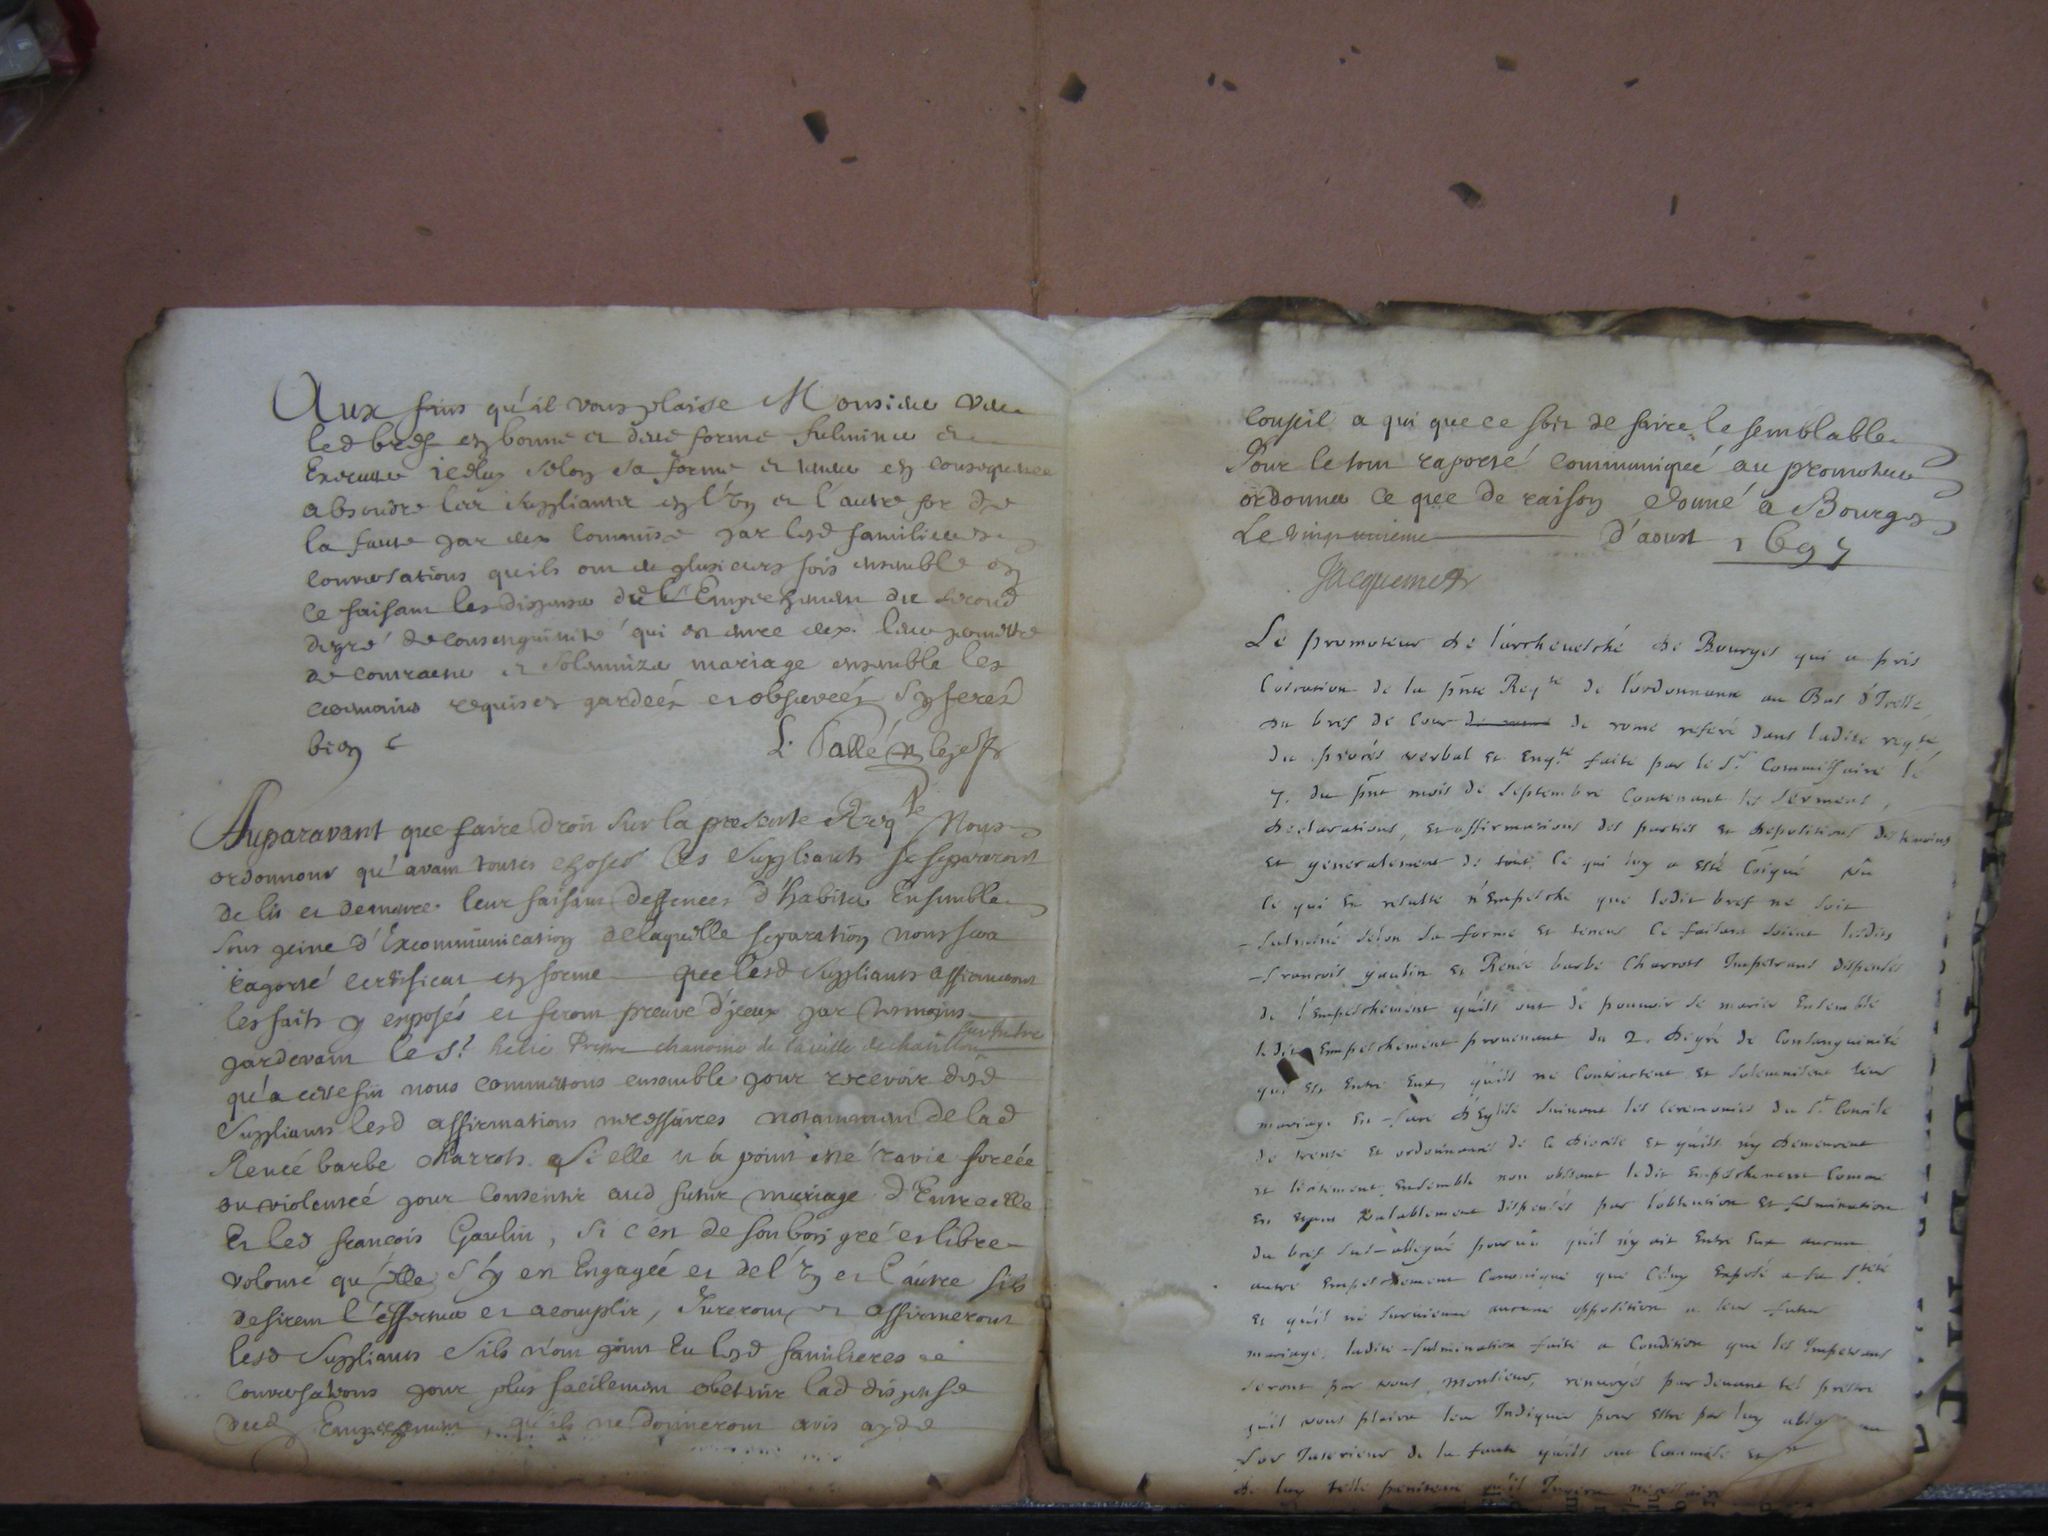 Aux fins qu'il vous plaise Monsieur veu
led bref en bonne et deue forme fulminer et
Executer icelluy selon sa forme et teneur en consequence
absoudre les suppliants en l'un et l'autre for de
la faute par eux commise par lesd familieres
conversations qu'ils ont eu plusieurs fois ensemble en
ce faisant les dispenser de l'Empeschement du second
degré de consenguinité qui est entre eux leur permettre
de contracter et solemnizer mariage ensemble les
ceremonies requises gardeés et observeés Sy ferés
bien
L. Pallé
Auparavant que faire droit sur la presente Reqte Nous
ordonnons qu'avant toutes choses les Suppliants se separeront
de lit et demeure leur faisant deffences d'habiter Ensemble
sous peine d'Excommunication de laquelle separation nous sera
raporté certificat en forme que lesd suppliants affirmeront
les faits y exposés et feront preuve d'jceux par tesmoins
pardevant le Sr Prestre chanoine de la ville de chatillon sur Indre
qu'a cette fin nous commettons ensemble pour recevoir desd
Suppliants lesd affirmations necessaires notamment de lad
Reneé barbe Charrots Si elle n'a point esté ravie forcée
ou violenteé pour consentir aud futur mariage d'Entre elle
Et led françois Gaulin, si c'est de son bon gré et libre
volonté qu'elle s'y est Engageé et de l'un et l'autre sils
desirent l'effectuer et acomplir, Jureront et affirmeront
lesd Suppliants sils n'ont point Eu lesd familieres
conversations pour plus facilement obtenir lad dispense
dud Empeschement, qu'ils ne donneront avis ayde
conseil a qui que ce soit de faire le semblable
Pour le tout raporté communiqué au promoteur
ordonner ce que de raison donné a Bourges
Le vingt uniême d'aoust 1697
Jacquemet
Le promoteur de l'archevesché de Bourges qui a pris
Coication de la pnte Reqte de l'ordonnance au Bas d'Icelle,
du bref de Cour de rome referé dans ladite reqte,
du procés verbal et Enqte faite par le Sr Commissaire le
7. du pnt mois de Septembre Contenant les serments,
declarations, et affirmations des parties et depositions des temoins
et generalement de tout ce qui luy a esté Coiqué Vû
ce qui En resulte n'Empesche que ledit bref ne soit
fulminé selon sa forme et teneur Ce faisant soient lesdits
françois gaulin et Renée barbe Charrots Impetrans dispensés
de l'Empeschement qu'ils ont de pouvoir se marier Ensemble
ledit Empeschement provenant du 2. degré de Consanguinité
qui Est Entre Eux, qu'ils ne Contractent et solemnisent leur
mariage En face d'Eglise suivant les ceremonies du St Concile
de trente et ordonnances de ce diocese et qu'ils n'y demeurent
et licitement Ensemble non obstant ledit Empeschement Comme
En Etant Valablement dispensés par l'obtention Et fulmination
du bref sus-allegué pourvû qu'il n'y ait Entre Eux aucun
autre Empeschement Canonique que Celuy Exposé a sa Steté
et qu'il ne survienne aucune opposition a leur futur
mariage. ladite fulmination faite a Condition que les Impetrans
seront par vous, Monsieur, renvoyés pardevant tel prestre
qu'il vous plaira leur Indiquer pour estre par luy
for Interieur de la faute qu'ils ont Commise et
de luy telle penitence qu'il Jugera necessaire